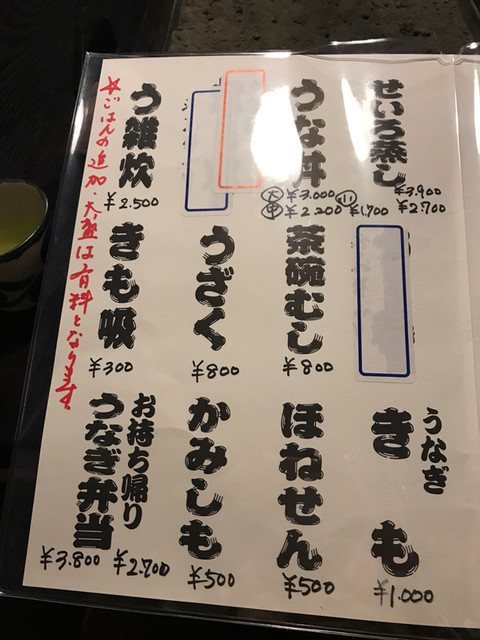 せいろ蒸し
¥3,900
¥2,700
うな丼
大 ¥3,000
中 ¥2,200 小 ¥1,700
う雑炊
¥2,500
茶碗むし
¥800
うざく
¥800
きも吸
¥300
うなぎ
きも
¥1,000
ほねせん
¥500
かみしも
¥500
お持ち帰り
うなぎ弁当
¥2,700
¥3,800
☆ごはんの追加・大盛は有料となります。